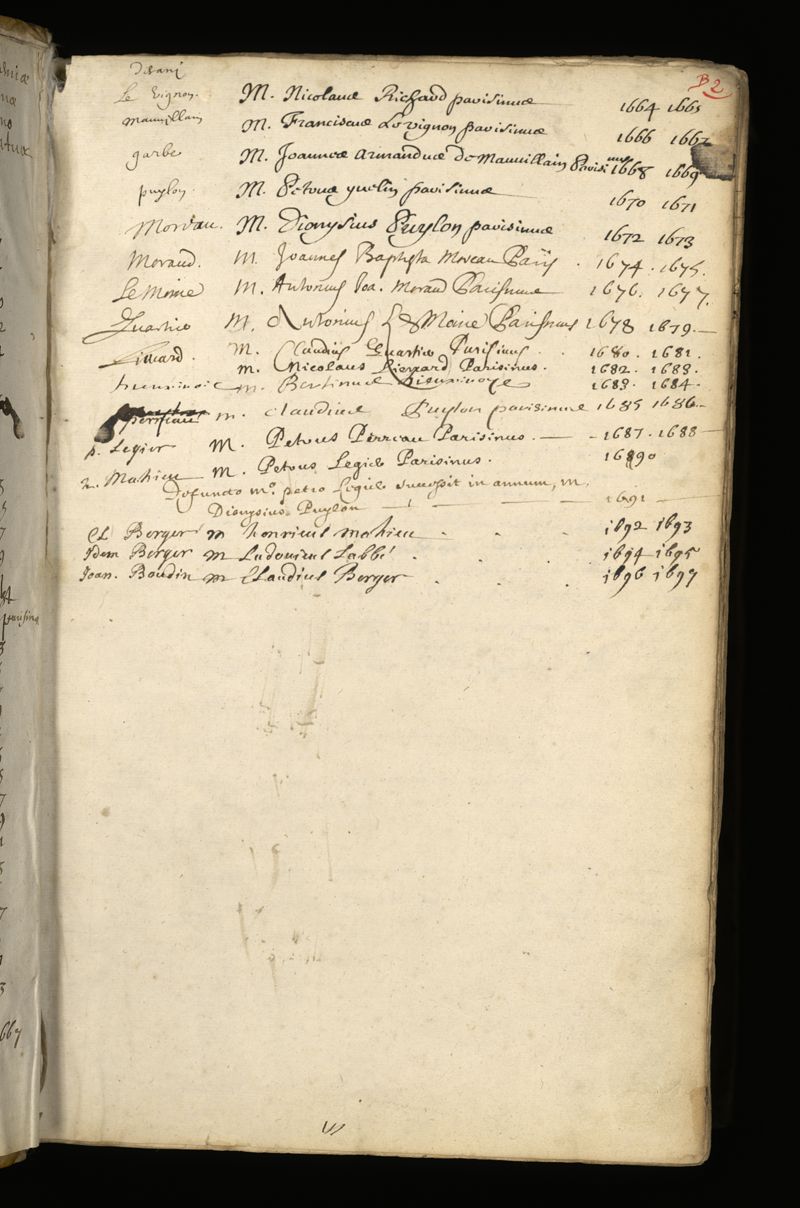 B2
decani
Le Vignon. M. Nicolaus Richard parisinus 1664 1665
Mauvillain M. Franciscus Le vignon parisinus 1666 1667
garbe M. Joannes armandus de Mauvillain Parisinus 1668 1669
puylon. M. Petrus yvelin parisinus 1670 1671
Moreau. M. Dionysius Puylon parisinus 1672 1673
Morand. M. Joannes Baptista Moreau Pariß . 1674 . 1675.
Le Moine M. Antonius Joa. Morand Parisinus 1676. 1677.
Quartier M. Antonius Le Moine Parisinus 1678 1679.
Lienard. M. Claudius Quartier Parisinus . . 1680 . 1681 .
M. Nicolaus Lienard Parisinus . 1682 . 1683 .
M. Bertinus Dieuxivoye 1683 . 1684 .
perreau M. Claudius Puylon parisinus 1685 1686
p. Legier M. Petrus Perreau Parisinus . 1687 . 1688
h. Mahieu M. Petrus Legier Parisinus . 1690
Defuncto mo. petro Legier successit in annum, M.
Dionysius Puylon 1691
Cl Berger M henricus mahieu . . . 1692 1693
Idem Berger M Ludovicus Labbé . . . 1694 1695
Joan. Boudin M Claudius Berger . . . 1696 1697